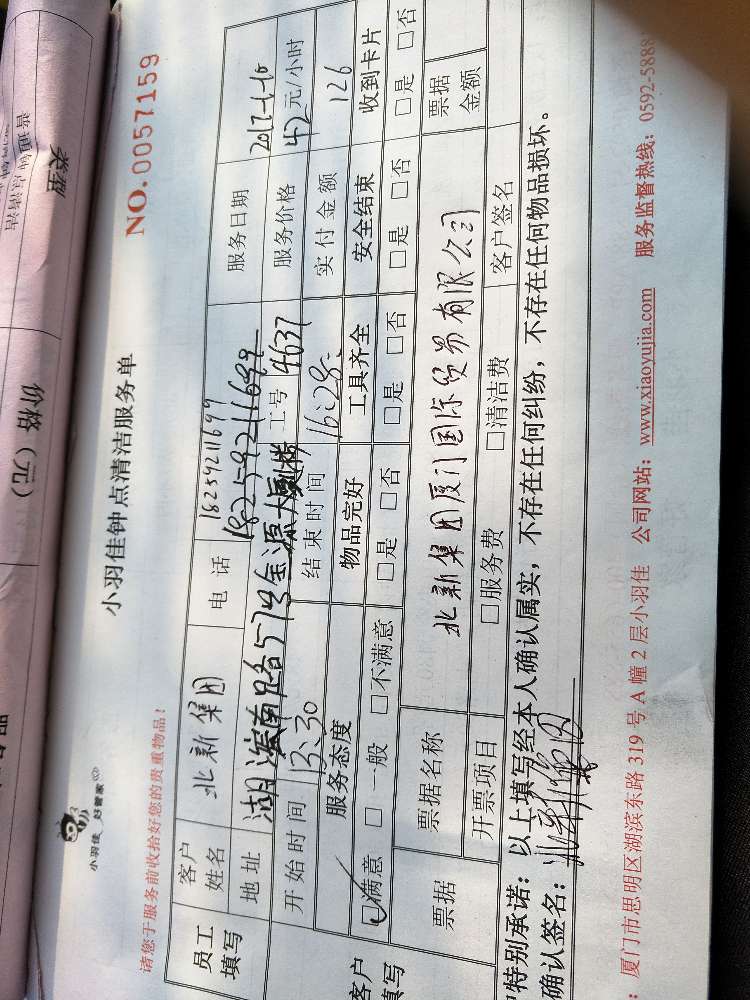 类型
普通钟点清洁
价格（元）
小羽佳 好管家
小羽佳钟点清洁服务单
NO.0057159
请您于服务前收拾好您的贵重物品！
员工填写
客户姓名 北新集团 电话 18259211699 服务日期 2017-1-10
地址 湖滨南路57号金源大厦 18259211699 服务价格 42元/小时
工号 4637
开始时间 13:30 结束时间 16:28 实付金额 126
服务态度 物品完好 工具齐全 安全结束 收到卡片
☑满意 □一般 □不满意 □是 □否 □是 □否 □是 □否 □是 □否
客户填写
票据 票据名称 北新集团厦门国际贸易有限公司 票据金额
开票项目 □服务费 □清洁费 客户签名
特别承诺：以上填写经本人确认属实，不存在任何纠纷，不存在任何物品损坏。
确认签名：北新集团
：厦门市思明区湖滨东路 319 号 A 幢 2 层小羽佳 公司网站：www.xiaoyujia.com 服务监督热线：0592-5888